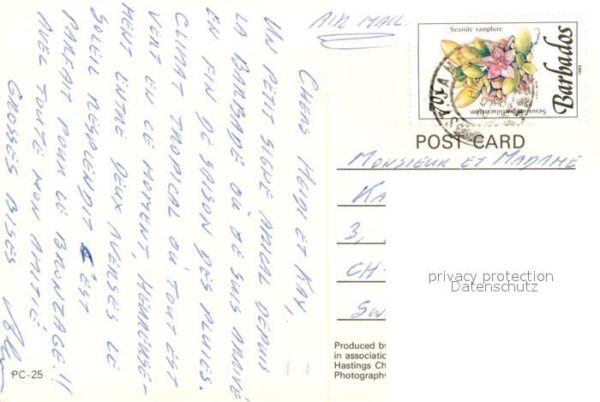 CHERS HEIDI ET KAY,
UN PETIT SIGNE AMICAL DEPUIS
LA BARBADE OÙ JE SUIS ARRIVÉ
EN FIN DE SAISON DES PLUIES.
CLIMAT TROPICAL OÙ TOUT EST
VERT EN CE MOMENT, HEUREUSE-
MENT ENTRE DEUX AVERSES LE
SOLEIL RESPLENDIT C'EST
PARFAIT POUR LE BRONZAGE!!
AVEC TOUTE MON AMITIÉ
GROSSES BISES
PC-25
AIR MAIL
Seaside samphire
Sesuvium portulacastrum
Barbados
POST CARD
MONSIEUR ET MADAME
KA
3,
CH-
SW
privacy protection
Datenschutz
Produced by
in association
Hastings Ch
Photography